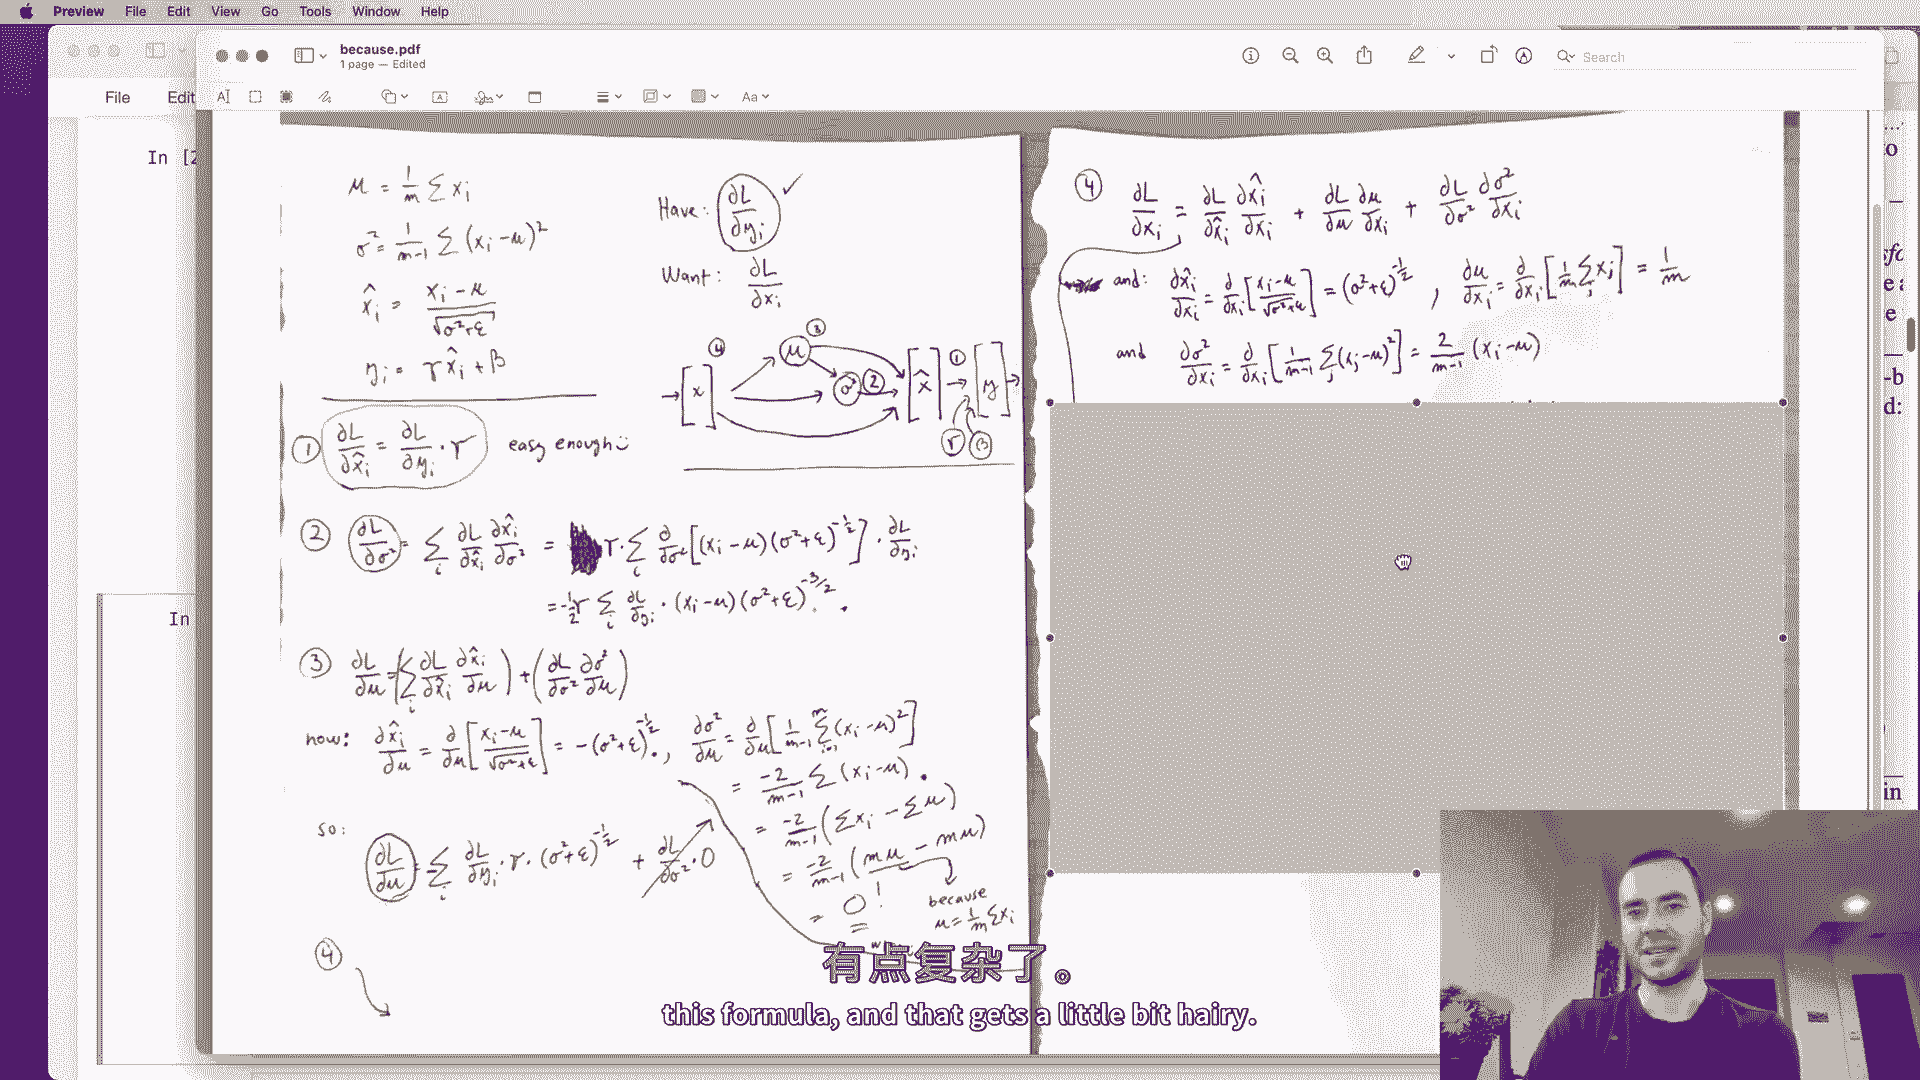 Preview File Edit View Go Tools Window Help
because.pdf
1 page — Edited
Search
File Edit
Aa
In [2
In
μ = 1/m Σ xᵢ
σ² = 1/(m-1) Σ (xᵢ-μ)²
x̂ᵢ = (xᵢ-μ)/√(σ²+ε)
yᵢ = γx̂ᵢ + β
Have: ∂L/∂yᵢ ✓
Want: ∂L/∂xᵢ
④ ③ μ σ² ② [x] [x̂] ① [y] γ β
① ∂L/∂x̂ᵢ = ∂L/∂yᵢ · γ easy enough :)
② ∂L/∂σ² = Σᵢ ∂L/∂x̂ᵢ ∂x̂ᵢ/∂σ² = γ·Σᵢ ∂/∂σ² [(xᵢ-μ)(σ²+ε)^(-1/2)] · ∂L/∂yᵢ
= -½γ Σᵢ ∂L/∂yᵢ · (xᵢ-μ)(σ²+ε)^(-3/2).
③ ∂L/∂μ = (Σᵢ ∂L/∂x̂ᵢ ∂x̂ᵢ/∂μ) + (∂L/∂σ² ∂σ²/∂μ)
now: ∂x̂ᵢ/∂μ = ∂/∂μ [(xᵢ-μ)/√(σ²+ε)] = -(σ²+ε)^(-1/2)., ∂σ²/∂μ = ∂/∂μ [1/(m-1) Σᵢ₌₁ᵐ (xᵢ-μ)²]
= -2/(m-1) Σ (xᵢ-μ).
= -2/(m-1) (Σxᵢ - Σμ)
= -2/(m-1) (mμ - mμ)
= 0!
because
μ = 1/m Σxᵢ
so: ∂L/∂μ = -Σᵢ ∂L/∂yᵢ · γ · (σ²+ε)^(-1/2) + ∂L/∂σ² · 0
④
④ ∂L/∂xᵢ = ∂L/∂x̂ᵢ ∂x̂ᵢ/∂xᵢ + ∂L/∂μ ∂μ/∂xᵢ + ∂L/∂σ² ∂σ²/∂xᵢ
and: ∂x̂ᵢ/∂xᵢ = ∂/∂xᵢ [(xᵢ-μ)/√(σ²+ε)] = (σ²+ε)^(-1/2), ∂μ/∂xᵢ = ∂/∂xᵢ [1/m Σⱼ xⱼ] = 1/m
and ∂σ²/∂xᵢ = ∂/∂xᵢ [1/(m-1) Σⱼ (xⱼ-μ)²] = 2/(m-1) (xᵢ-μ)
有点复杂了。
this formula, and that gets a little bit hairy.